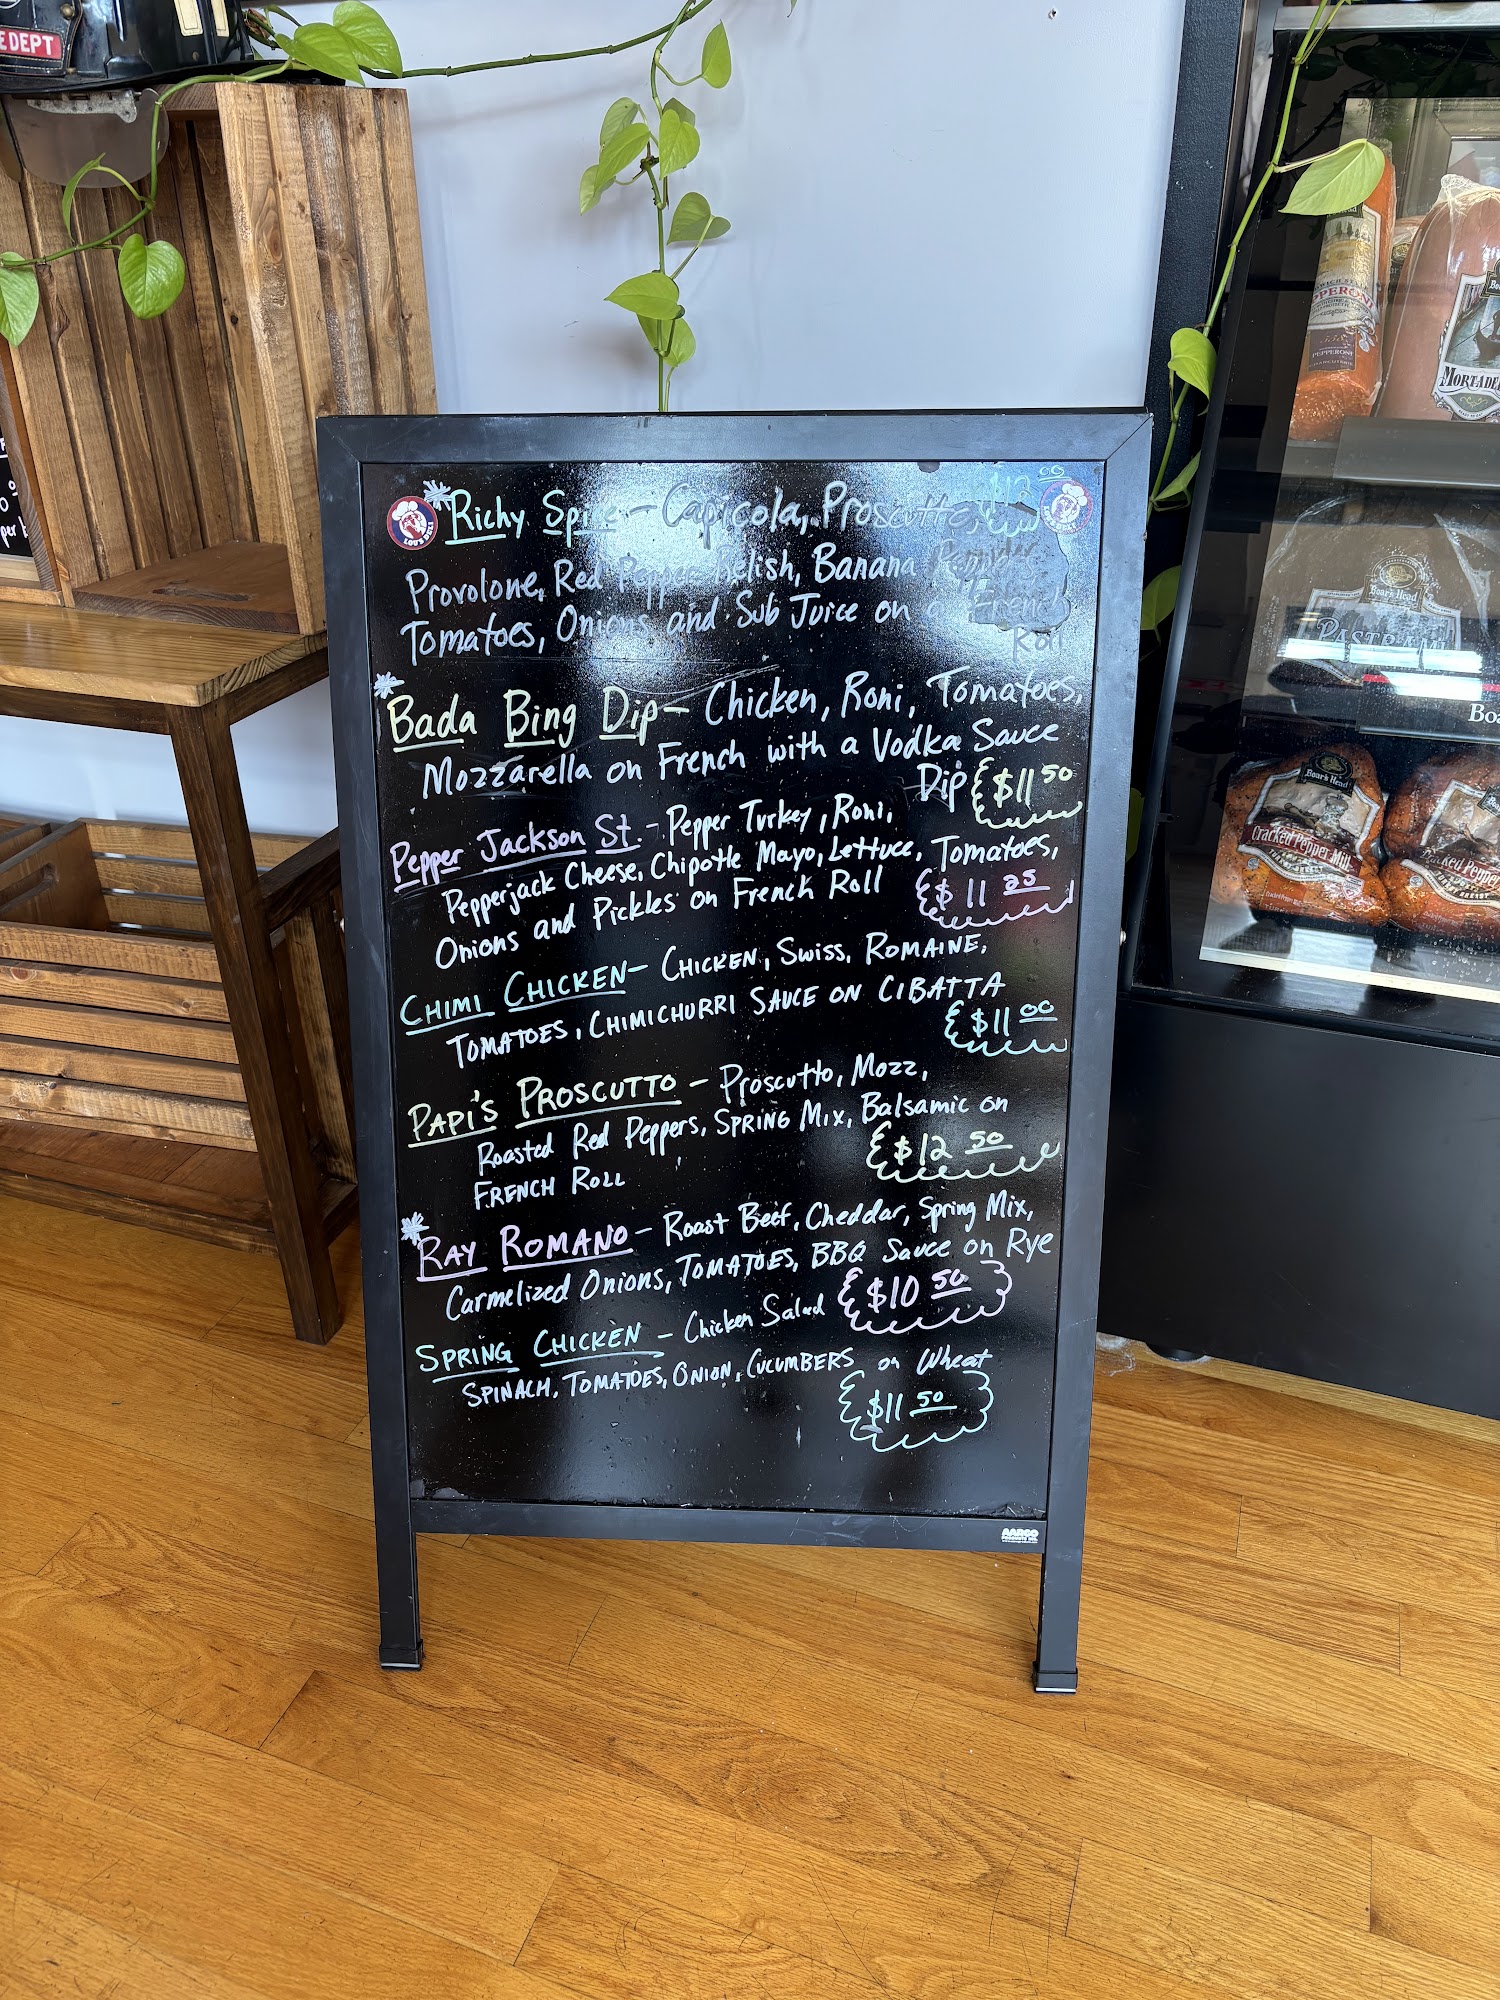 E DEPT
Richy Spice - Capicola, Proscutto,
Provolone, Red Pepper Relish, Banana Peppers
Tomatoes, Onions and Sub Juice on a French
Roll
LOU'S DELI
Bada Bing Dip - Chicken, Roni, Tomatoes,
Mozzarella on French with a Vodka Sauce
Dip $11 50
Pepper Jackson St. - Pepper Turkey, Roni,
Pepperjack Cheese, Chipotle Mayo, Lettuce, Tomatoes,
Onions and Pickles on French Roll $11 25
CHIMI CHICKEN - CHICKEN, SWISS, ROMAINE,
TOMATOES, CHIMICHURRI SAUCE ON CIBATTA
$11 00
PAPI'S PROSCUTTO - Proscutto, Mozz,
Roasted Red Peppers, SPRING MIX, Balsamic on
FRENCH ROLL $12 50
RAY ROMANO - Roast Beef, Cheddar, Spring Mix,
Carmelized Onions, TOMATOES, BBQ Sauce on Rye
$10 50
SPRING CHICKEN - Chicken Salad
SPINACH, TOMATOES, ONION, CUCUMBERS on Wheat
$11 50
AARCO
PEPPERONI
MORTADE
Boar's Head
PASTRAMI
Boa
Boar's Head
Cracked Pepper Mill
Cracked Pepper